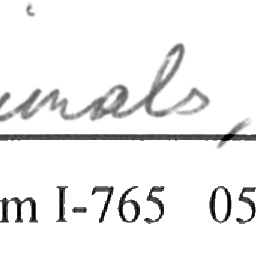 inals,
m I-765 05